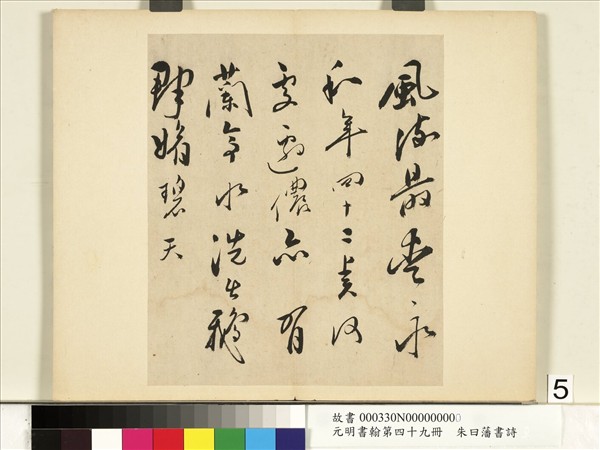 風流最愛永
和年四十二賢何
處邊儂亦有
蘭亭水洗出鵝
群媚碧天
5
故書 000330N000000000
元明書翰第四十九冊 朱曰藩書詩